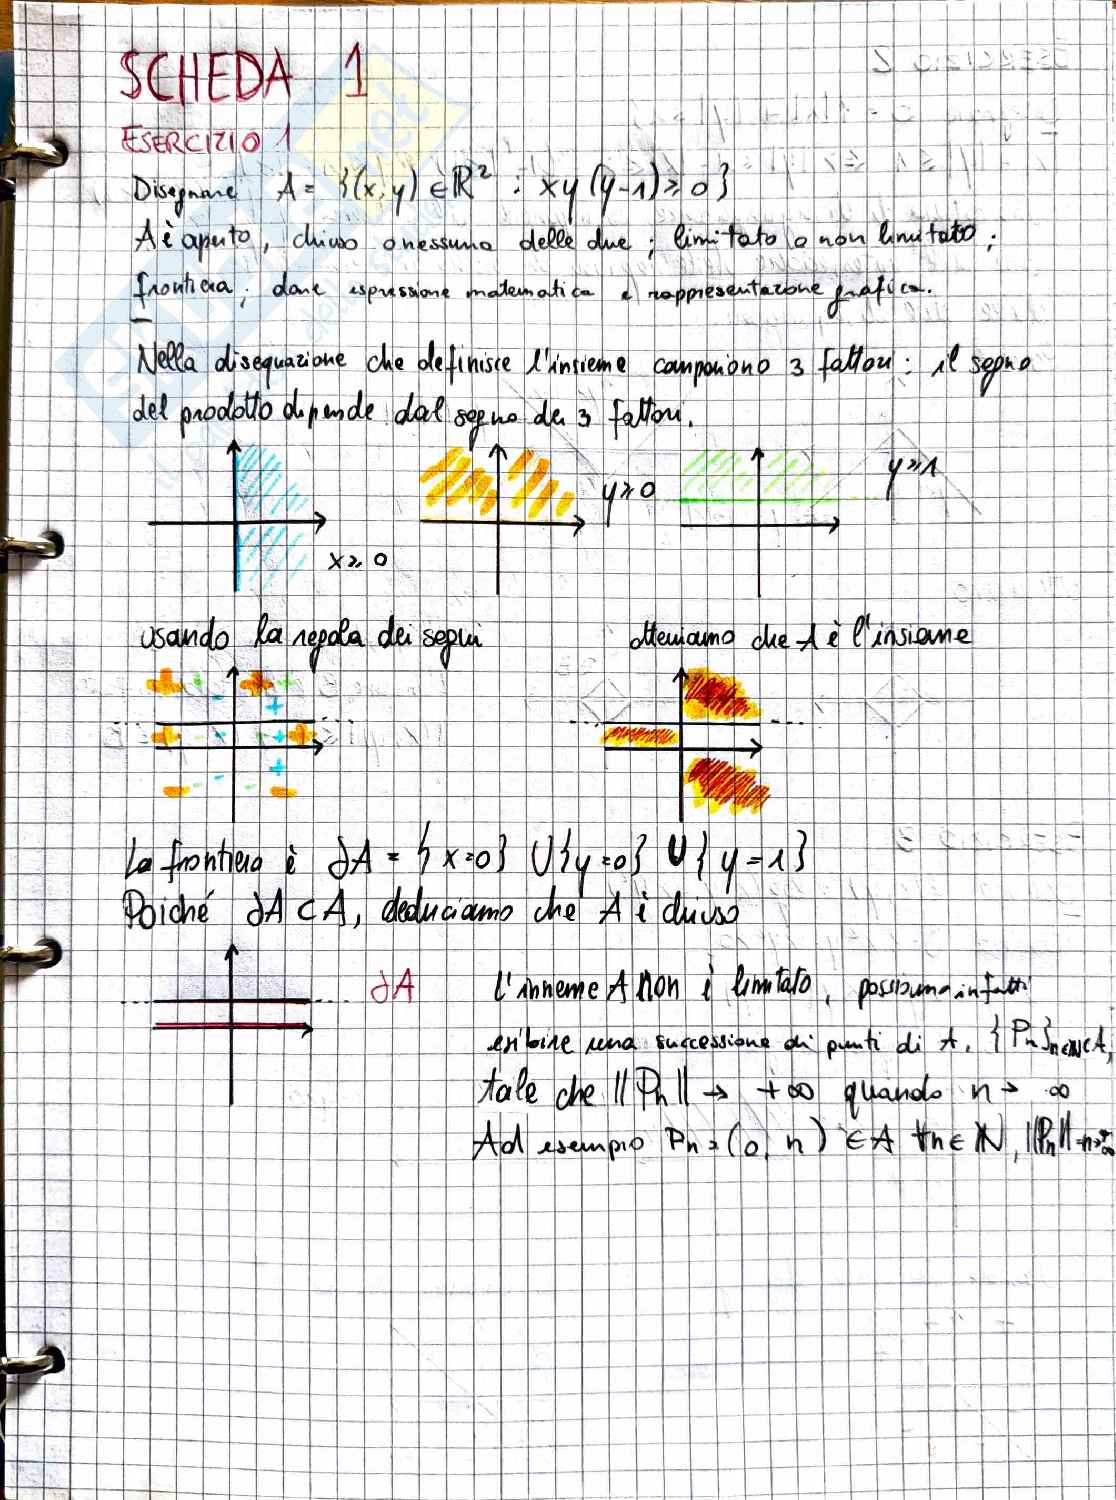 SCHEDA 1
ESERCIZIO 1
Disegnare A = {(x,y) ∈ ℝ² : xy(y-1) ≥ 0}
A è aperto, chiuso o nessuna delle due; limitato o non limitato;
frontiera; dare espressione matematica e rappresentazione grafica.
Nella disequazione che definisce l'insieme compaiono 3 fattori: il segno
del prodotto dipende dal segno dei 3 fattori.
x ≥ 0
y ≥ 0
y ≥ 1
usando la regola dei segni
otteniamo che A è l'insieme
La frontiera è ∂A = {x=0} ∪ {y=0} ∪ {y=1}
Poiché ∂A ⊂ A, deduciamo che A è chiuso
∂A
L'insieme A non è limitato, possiamo infatti
esibire una successione di punti di A, {Pn}n∈ℕ ⊂ A,
tale che ||Pn|| → +∞ quando n → ∞
Ad esempio Pn = (0, n) ∈ A ∀n ∈ ℕ, ||Pn|| = n → +∞